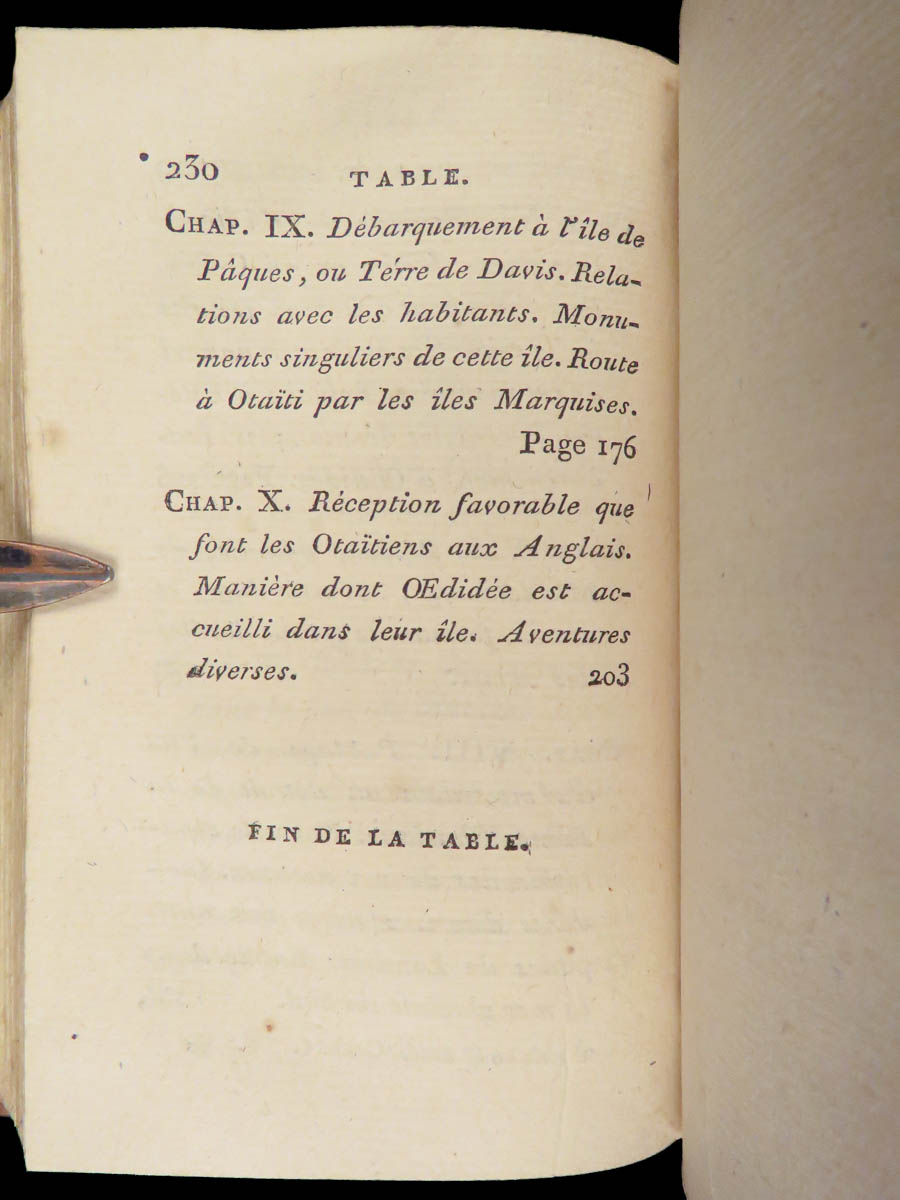 230 TABLE.
CHAP. IX. Débarquement à l'île de
Pâques, ou Terre de Davis. Rela-
tions avec les habitants. Monu-
ments singuliers de cette île. Route
à Otaïti par les îles Marquises.
Page 176
CHAP. X. Réception favorable que
font les Otaïtiens aux Anglais.
Manière dont OEdidée est ac-
cueilli dans leur île. Aventures
diverses. 203
FIN DE LA TABLE.